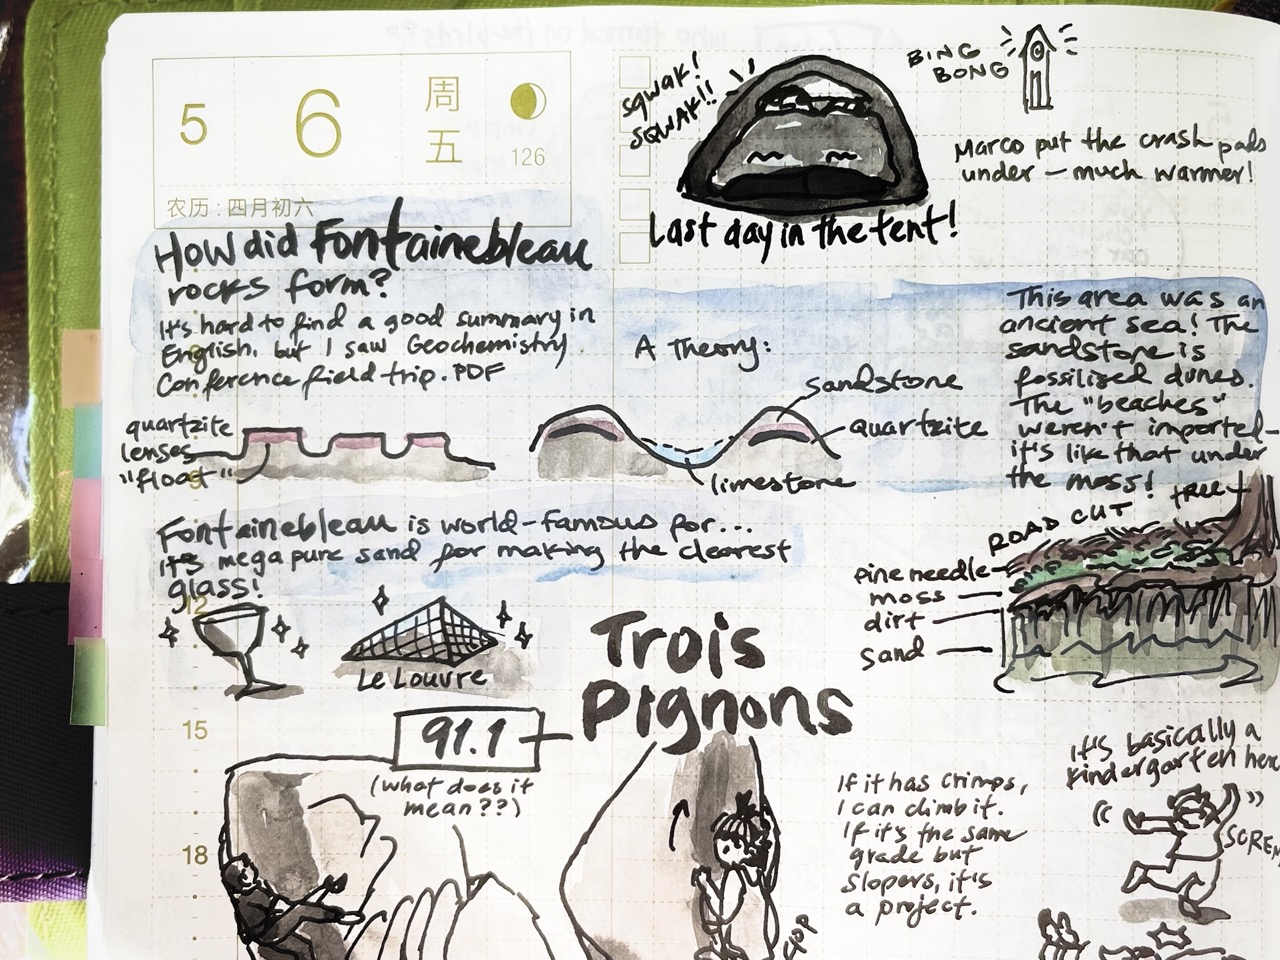 5
6
周
五
126
农历：四月初六
squak!
SQWAK!!
BING
BONG
Marco put the crash pads
under — much warmer!
Last day in the tent!
How did Fontainebleau
rocks form?
It's hard to find a good summary in
English, but I saw Geochemistry
Conference field trip.PDF
quartzite
lenses
"float"
A Theory:
sandstone
quartzite
limestone
This area was an
ancient sea! The
sandstone is
fossilized dunes.
The "beaches"
weren't imported-
it's like that under
the moss!
Fontainebleau is world-famous for...
It's mega pure sand for making the clearest
glass!
12
Le Louvre
ROAD CUT
tree
pine needle
moss
dirt
sand
Trois
Pignons
15
91.1
(what does it
mean??)
18
If it has crimps,
I can climb it.
If it's the same
grade but
slopers, it's
a project.
It's basically a
kindergarten here
SCREM